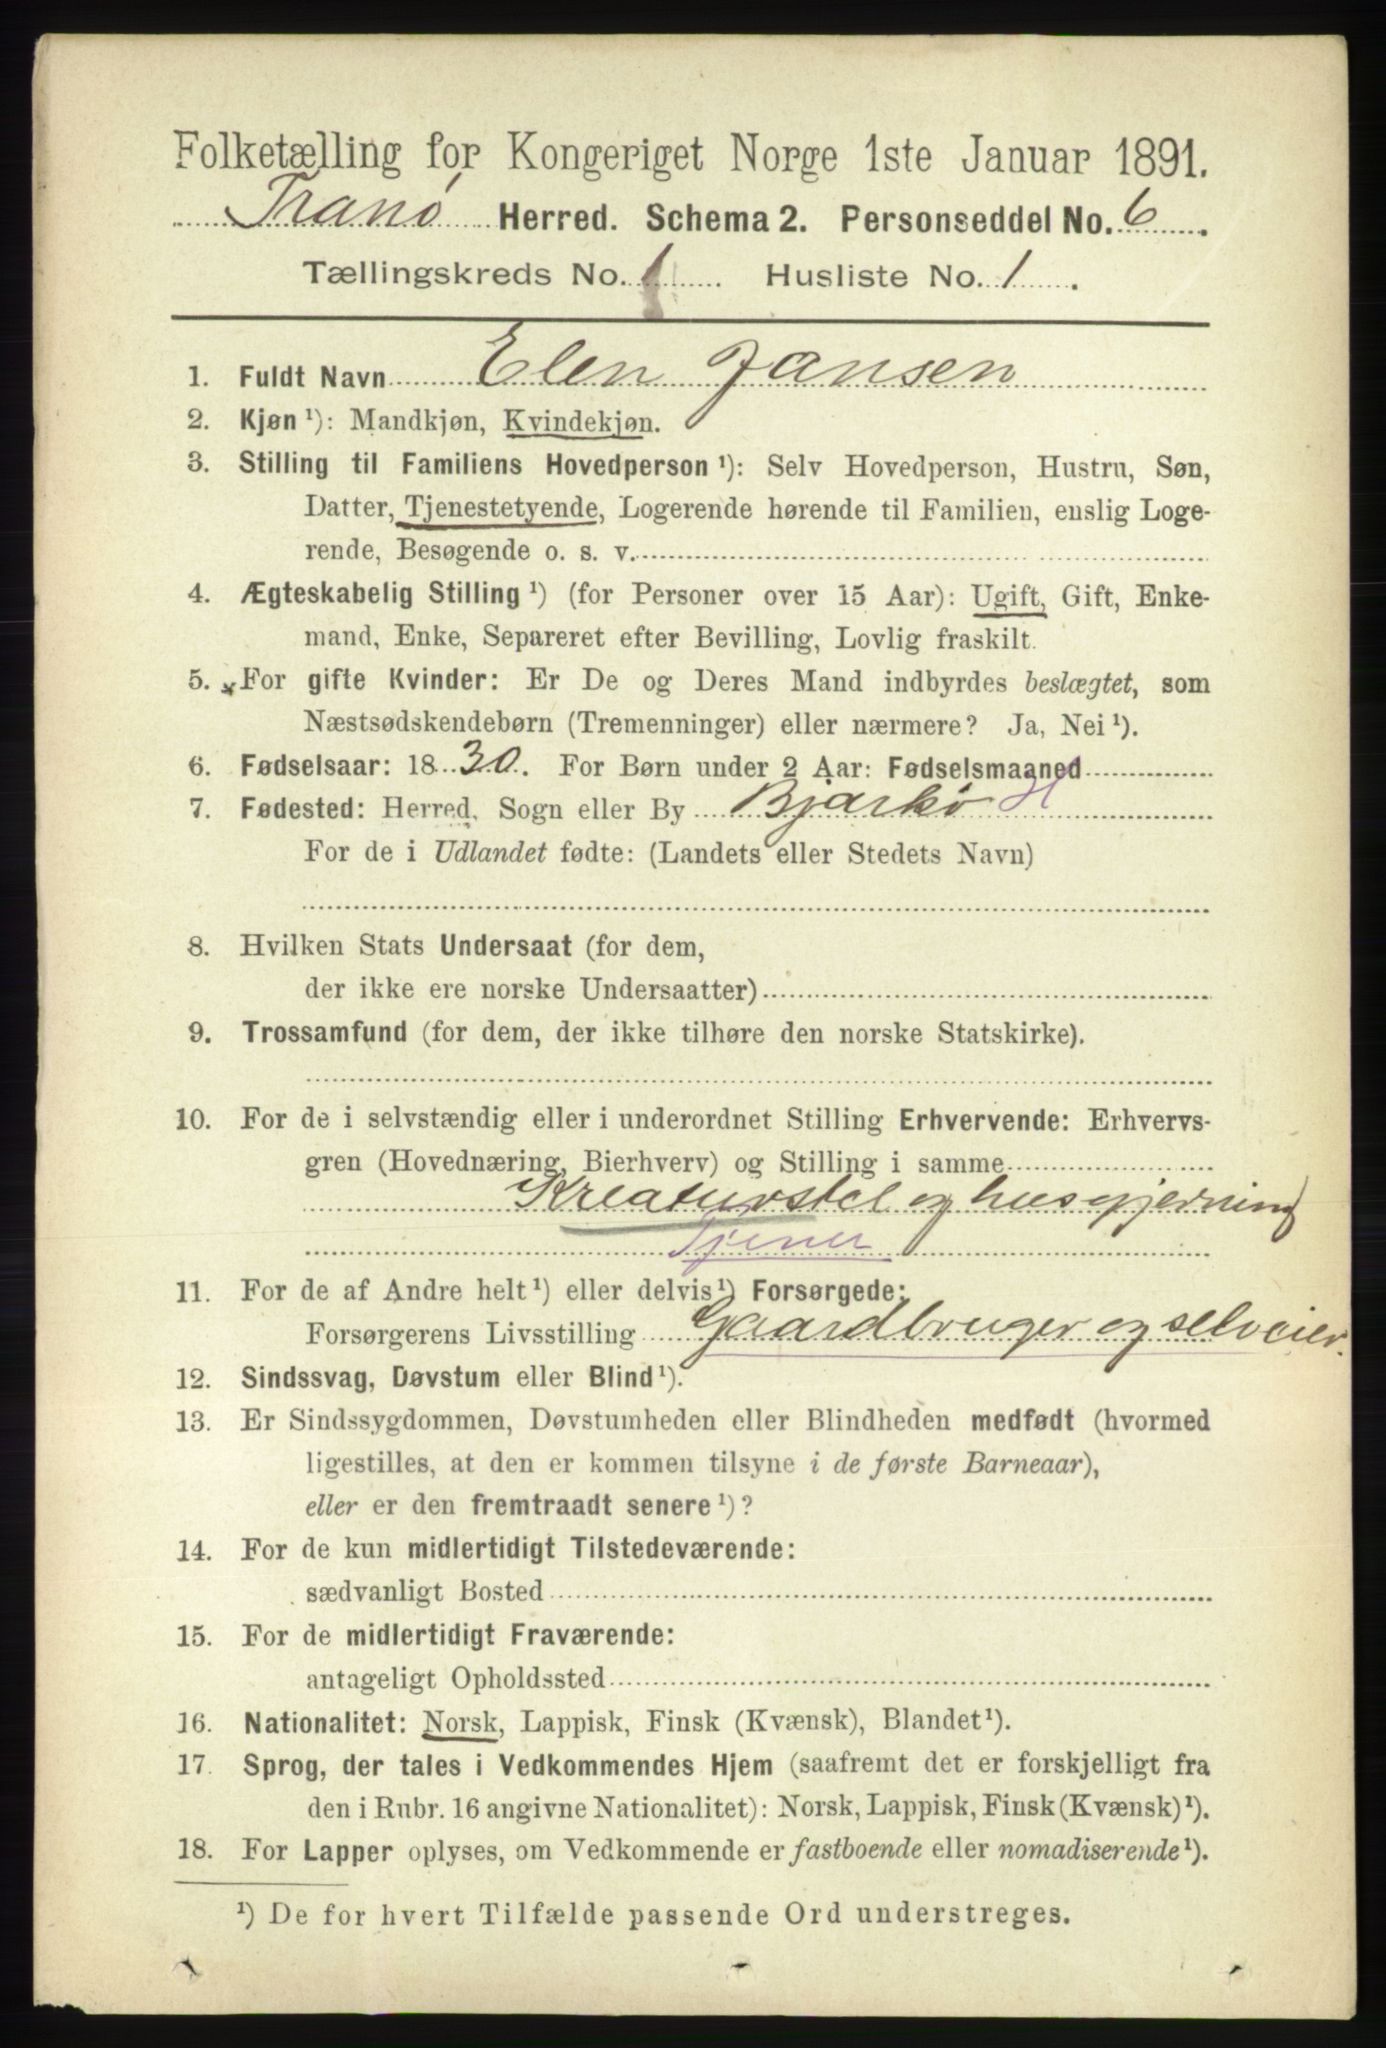 Folketælling for Kongeriget Norge 1ste Januar 1891.
Tranö Herred. Schema 2. Personseddel No. 6.
Tællingskreds No. 1 Husliste No. 1.
1. Fuldt Navn Elen Jansen
2. Kjøn ¹): Mandkjøn, Kvindekjøn.
3. Stilling til Familiens Hovedperson ¹): Selv Hovedperson, Hustru, Søn,
Datter, Tjenestetyende, Logerende hørende til Familien, enslig Loge-
rende, Besøgende o. s. v.
4. Ægteskabelig Stilling ¹) (for Personer over 15 Aar): Ugift, Gift, Enke-
mand, Enke, Separeret efter Bevilling, Lovlig fraskilt.
5. × For gifte Kvinder: Er De og Deres Mand indbyrdes beslægtet, som
Næstsødskendebørn (Tremenninger) eller nærmere? Ja, Nei ¹).
6. Fødselsaar: 1830. For Børn under 2 Aar: Fødselsmaaned
7. Fødested: Herred, Sogn eller By Bjarkö H
For de i Udlandet fødte: (Landets eller Stedets Navn)
8. Hvilken Stats Undersaat (for dem,
der ikke ere norske Undersaatter)
9. Trossamfund (for dem, der ikke tilhøre den norske Statskirke).
10. For de i selvstændig eller i underordnet Stilling Erhvervende: Erhvervs-
gren (Hovednæring, Bierhverv) og Stilling i samme
Kreaturstel og husgjerning
Tjener
11. For de af Andre helt ¹) eller delvis ¹) Forsørgede:
Forsørgerens Livsstilling Gaardbruger og selveier.
12. Sindssvag, Døvstum eller Blind ¹).
13. Er Sindssygdommen, Døvstumheden eller Blindheden medfødt (hvormed
ligestilles, at den er kommen tilsyne i de første Barneaar),
eller er den fremtraadt senere ¹)?
14. For de kun midlertidigt Tilstedeværende:
sædvanligt Bosted
15. For de midlertidigt Fraværende:
antageligt Opholdssted
16. Nationalitet: Norsk, Lappisk, Finsk (Kvænsk), Blandet ¹).
17. Sprog, der tales i Vedkommendes Hjem (saafremt det er forskjelligt fra
den i Rubr. 16 angivne Nationalitet): Norsk, Lappisk, Finsk (Kvænsk) ¹).
18. For Lapper oplyses, om Vedkommende er fastboende eller nomadiserende ¹).
¹) De for hvert Tilfælde passende Ord understreges.